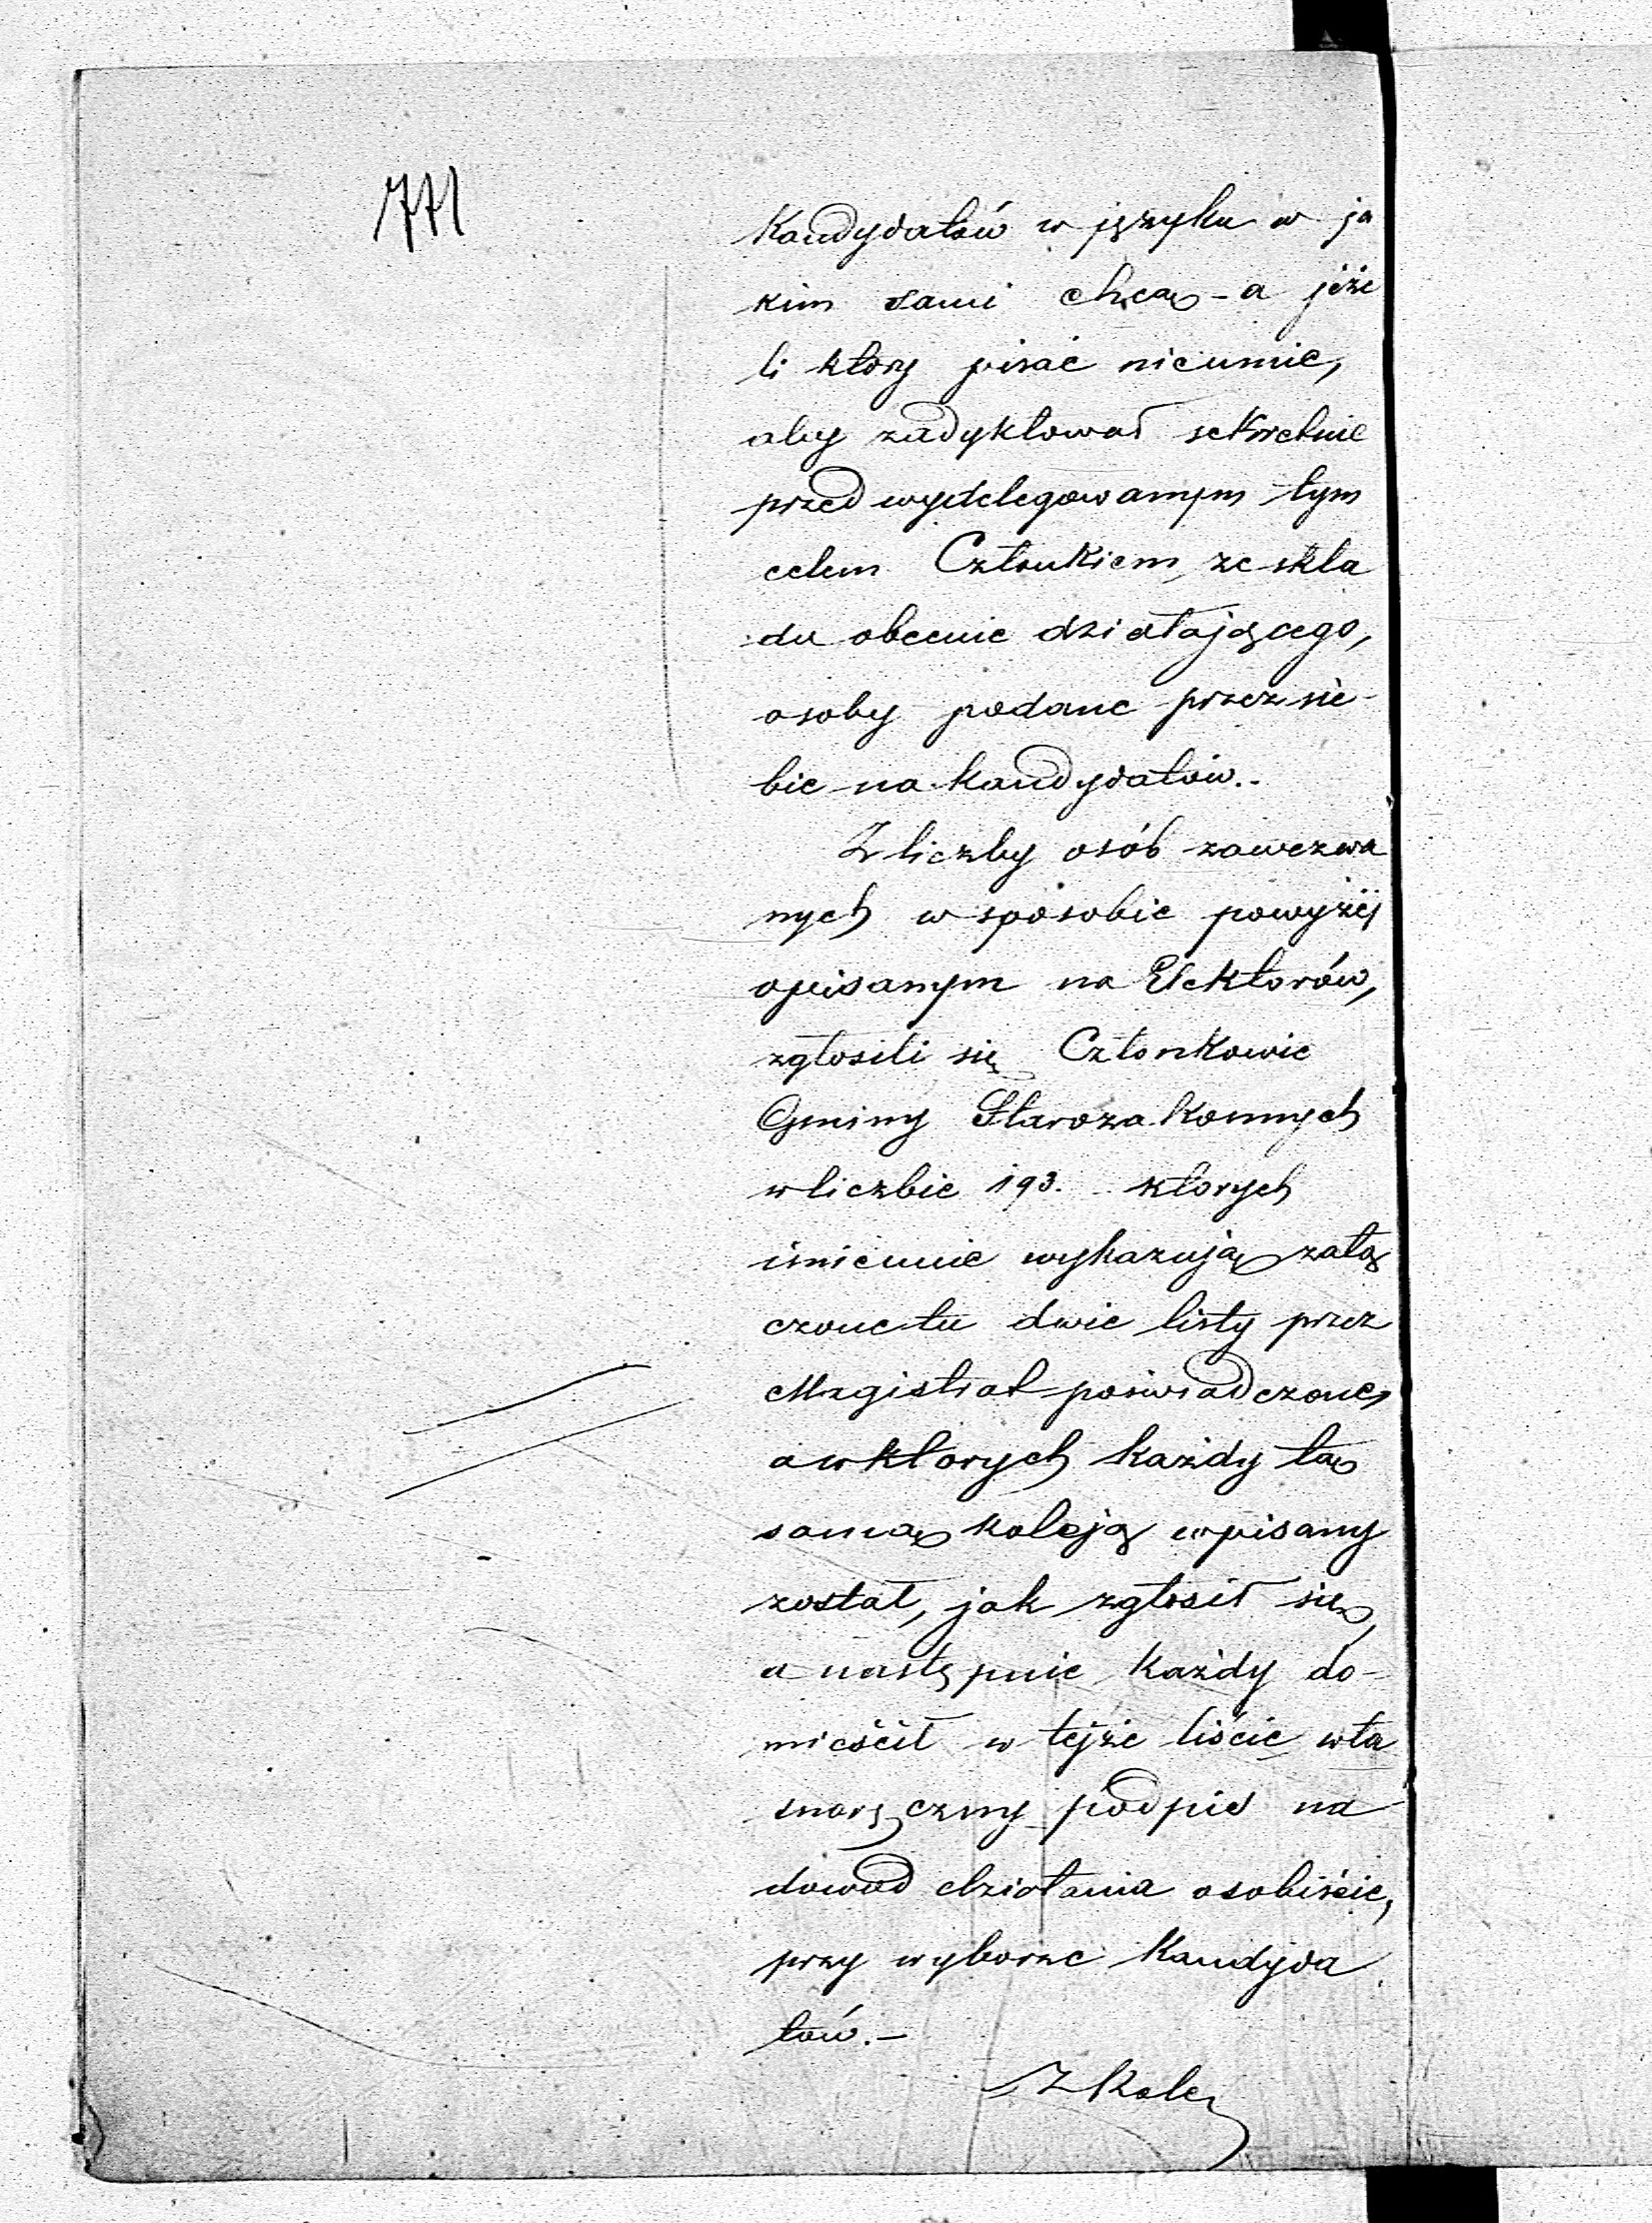 771
Kandydatów w języku w ja
kim sami chcą - a jeże
li który pisać nieumie,
aby zadyktował sekretnie
przed wydelegowanym tym
celem Członkiem, ze skła
du obecnie działającego,
osoby podane przez sie-
bie na kandydatów.-
Z liczby osób zawezwa
nych w sposobie powyżej
opisanym na Elektorów,
zgłosili się Członkowie
Gminy Starozakonnych
w liczbie 193. których
imiennie wykazują załą
czone tu dwie listy przez
Magistrat poświadczone,
a w których każdy tą
samą koleją wpisany
został, jak zgłosił się,
a następnie każdy do-
mieścił w tejże liście wła
snoręczny podpis na
dowód działania osobiście,
przy wyborze Kandyda
tów.-
Z Kolei